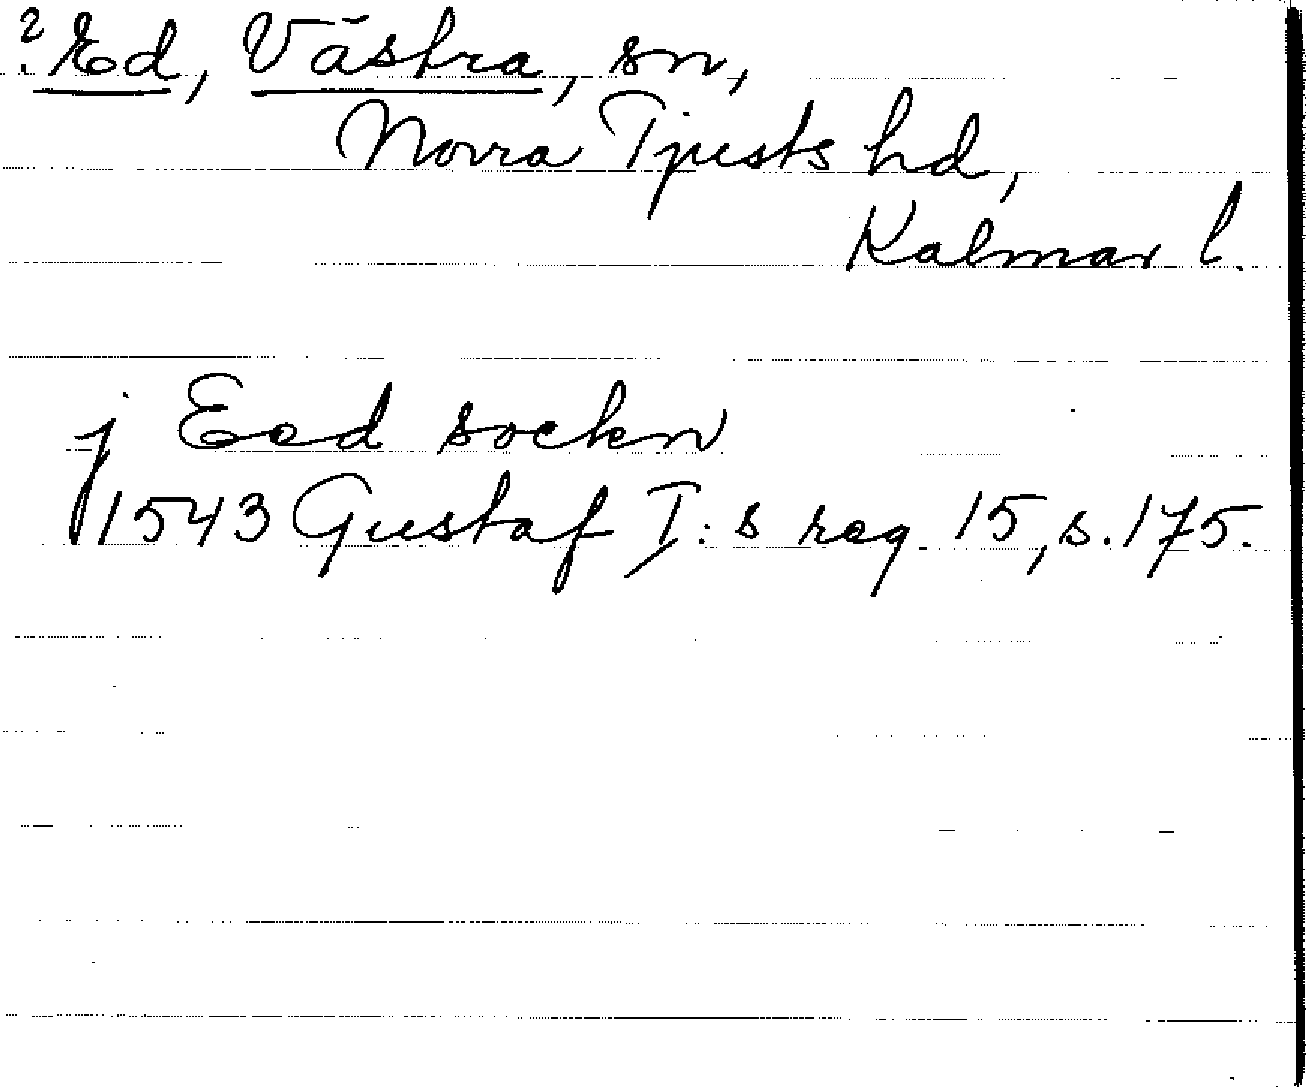 ? Ed, Västra, sn,
Norra Tjusts hd,
Kalmar l.
j Eed sockn
1543 Gustaf I:s reg 15, s. 175.